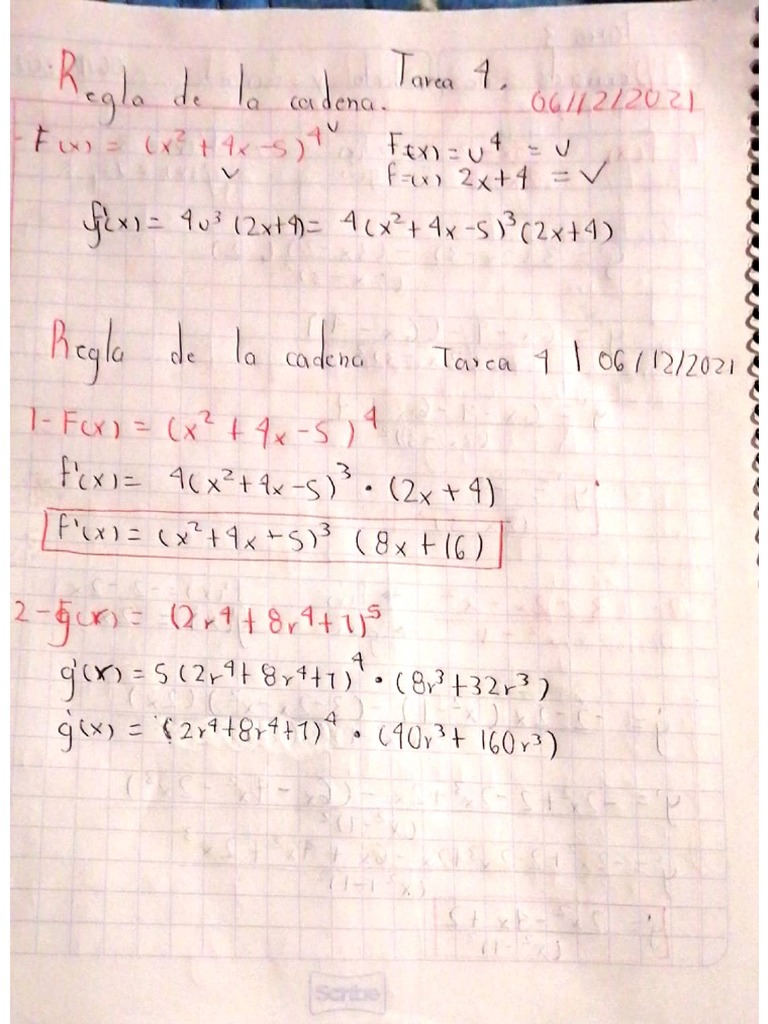 Regla de la cadena. Tarea 4.
06/12/2021
F(x) = (x² + 4x - 5)⁴ᵁ F(x) = u⁴ = u
v f=(x) 2x+4 = v
f'(x) = 4u³ (2x+4) = 4(x² + 4x - 5)³(2x+4)
Regla de la cadena Tarea 4 | 06/12/2021
1- F(x) = (x² + 4x - 5)⁴
f'(x) = 4(x² + 4x - 5)³ • (2x + 4)
f'(x) = (x² + 4x - 5)³ (8x + 16)
2- g(x) = (2r⁴ + 8r⁴ + 7)⁵
g'(x) = 5(2r⁴ + 8r⁴ + 7)⁴ • (8r³ + 32r³)
g'(x) = (2r⁴ + 8r⁴ + 7)⁴ • (40r³ + 160r³)
Scribe